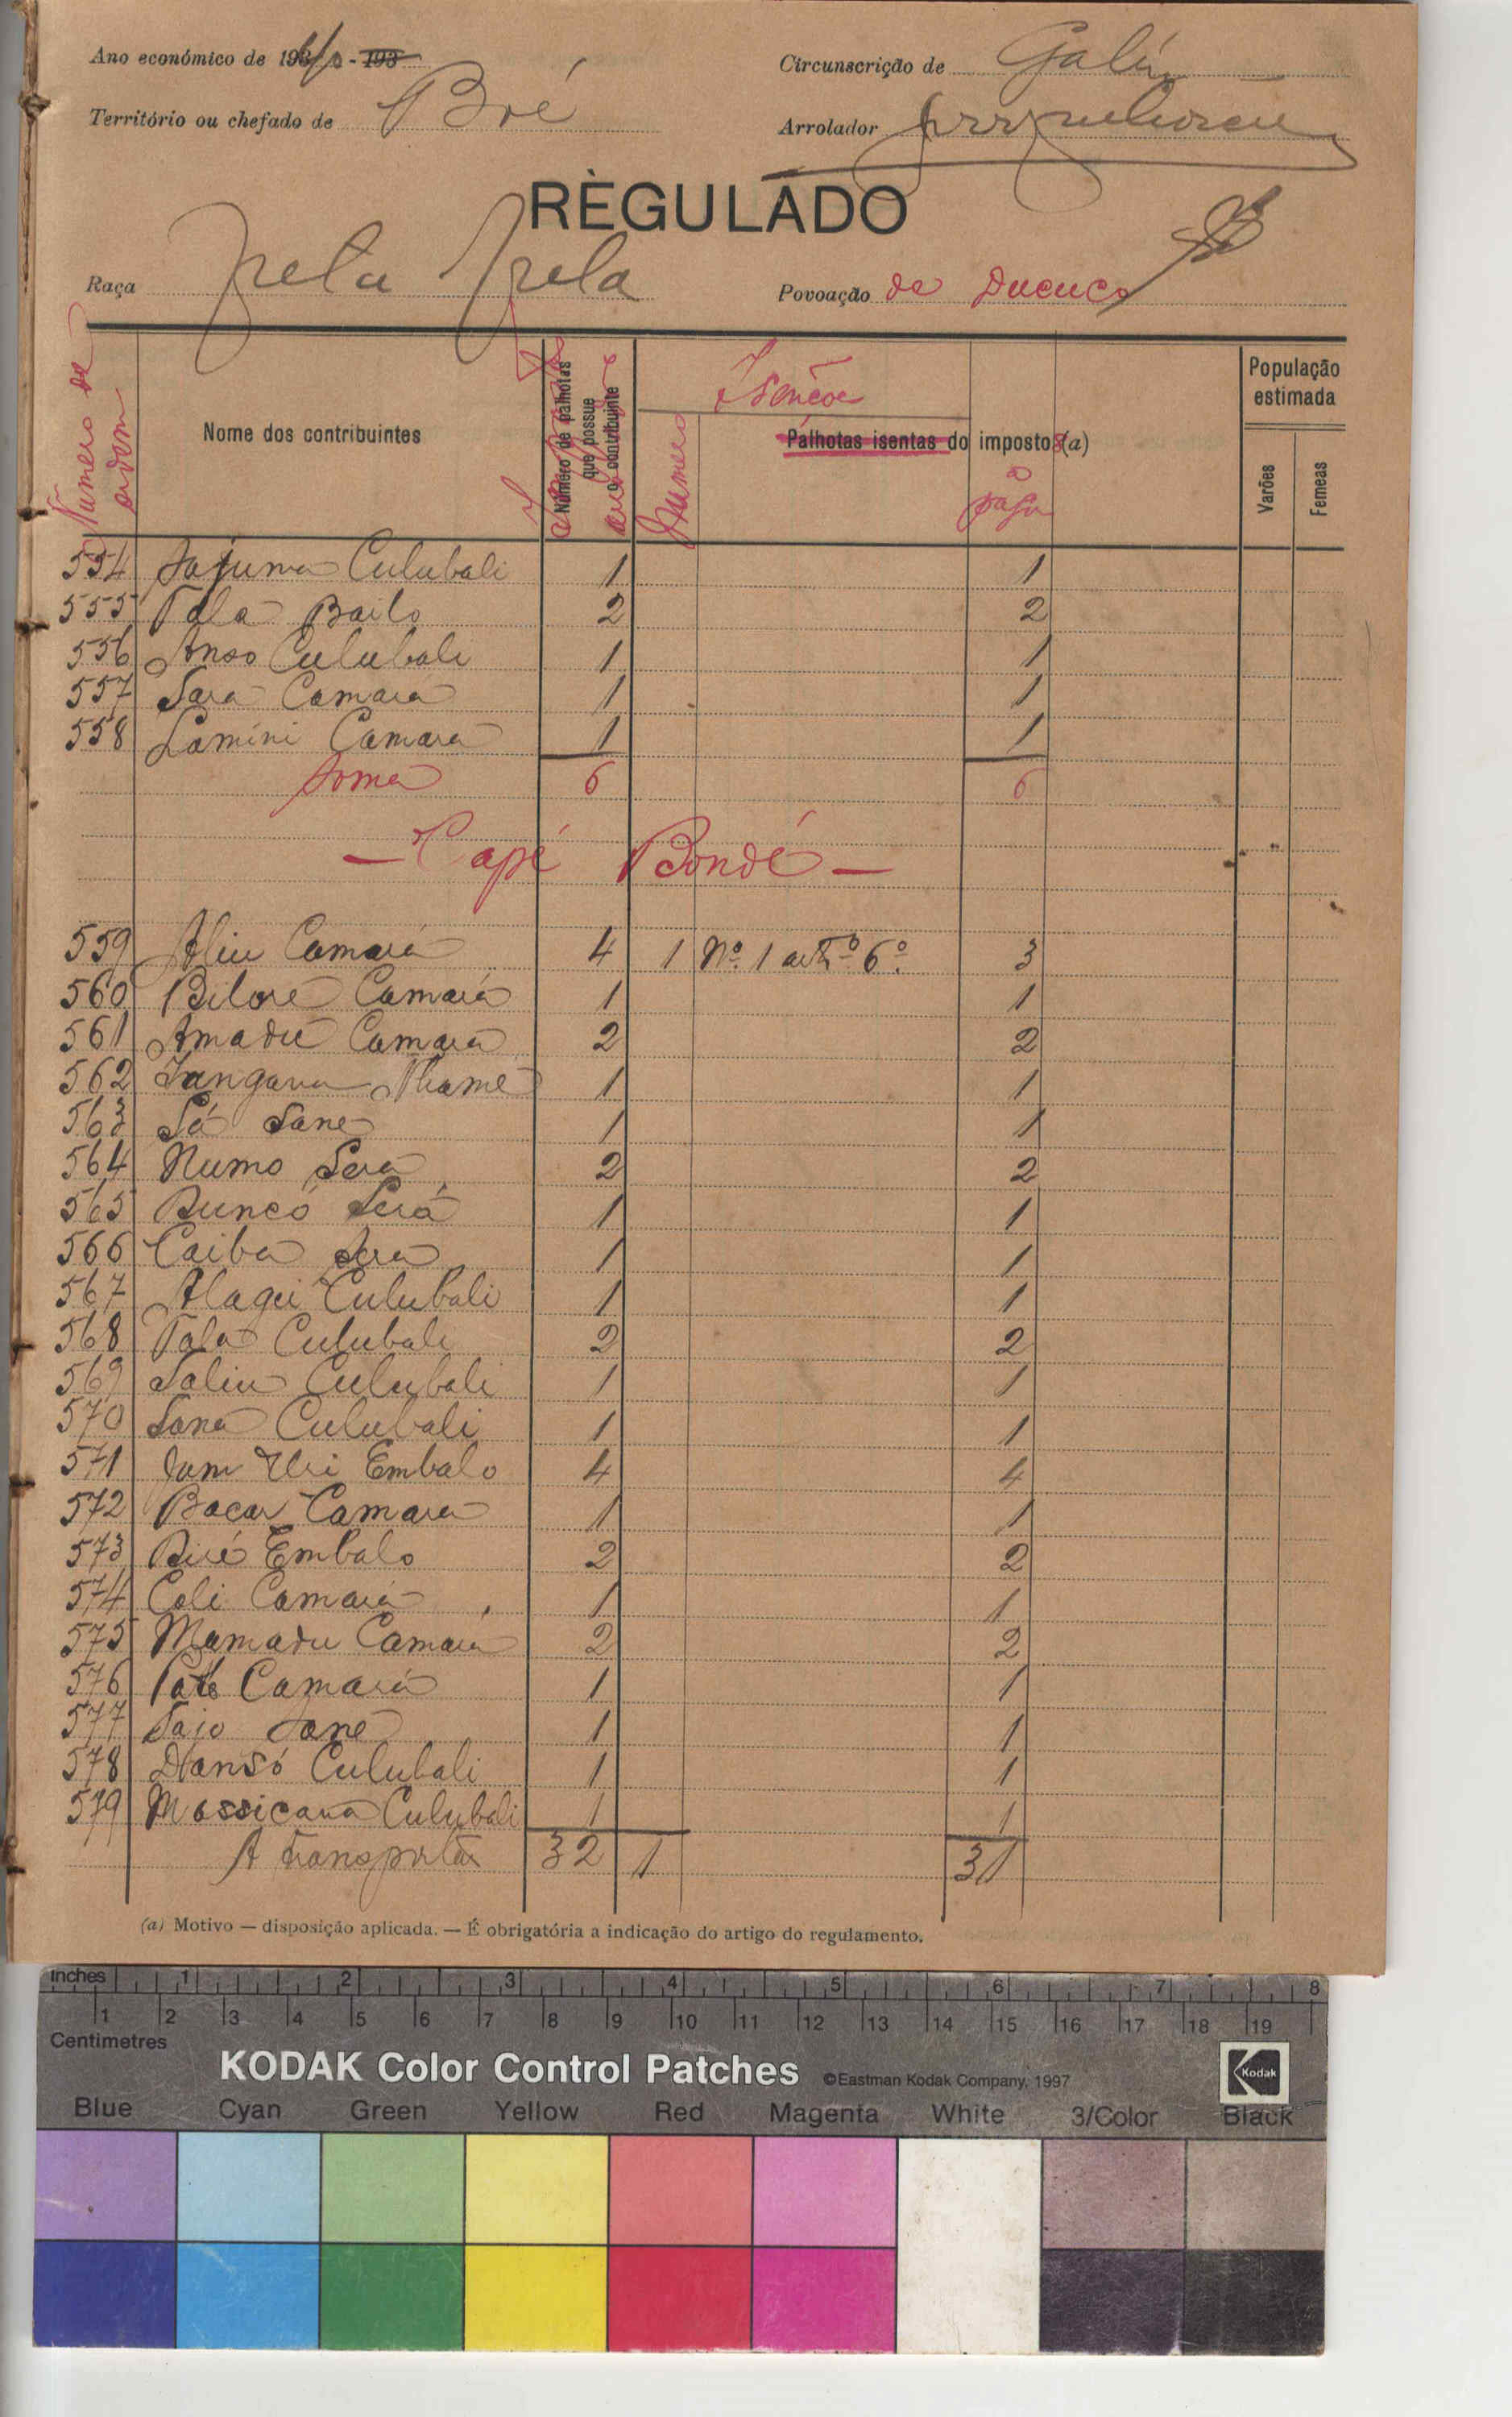 Ano económico de 194/ - 193
Circunscrição de Gabú
Território ou chefado de Boé
Arrolador
RÈGULADO
Raça Fula Fula
Povoação de Ducuco
Numero de ordem
Nome dos contribuintes
Número de palhotas que possue o contribuinte
Isenções
Numero
Palhotas isentas do imposto (a)
a pagar
População estimada
Varões
Femeas
554 Sajuma Culubali 1 1
555 Tala Bailo 2 2
556 Anso Culubali 1 1
557 Sara Camara 1 1
558 Lamini Camara 1 1
Soma 6 6
— Capé Bondé —
559 Aliu Camará 4 1 Nº 1 artº 6º. 3
560 Biloré Camará 1 1
561 Amadú Camara 2 2
562 Sangara 1 1
563 Sá Sane 1 1
564 Numo Sera 2 2
565 Buncó Será 1 1
566 Caiba Sera 1 1
567 Alagui Culubali 1 1
568 Tala Culubali 2 2
569 Saliu Culubali 1 1
570 Sana Culubali 1 1
571 Jam Uri Embalo 4 4
572 Bacar Camara 1 1
573 Biré Embalo 2 2
574 Coli Camará 1 1
575 Mamadu Camará 2 2
576 Pate Camará 1 1
577 Sajo Sane 1 1
578 Dansó Culubali 1 1
579 Massicana Culubali 1 1
A transportar 32 1 31
(a) Motivo — disposição aplicada. — É obrigatória a indicação do artigo do regulamento.
Inches 1 2 3 4 5 6 7 8
1 2 3 4 5 6 7 8 9 10 11 12 13 14 15 16 17 18 19
Centimetres
KODAK Color Control Patches ©Eastman Kodak Company, 1997 Kodak
Blue Cyan Green Yellow Red Magenta White 3/Color Black